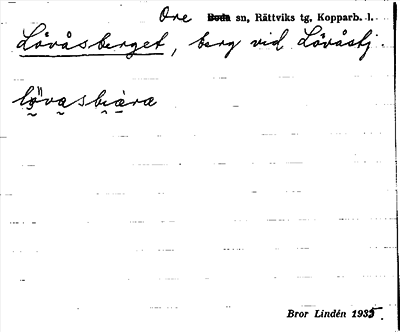 Ore Boda sn, Rättviks tg, Kopparb. l.
Lövåsberget, berg vid Lövåstj.
Bror Lindén 1935.